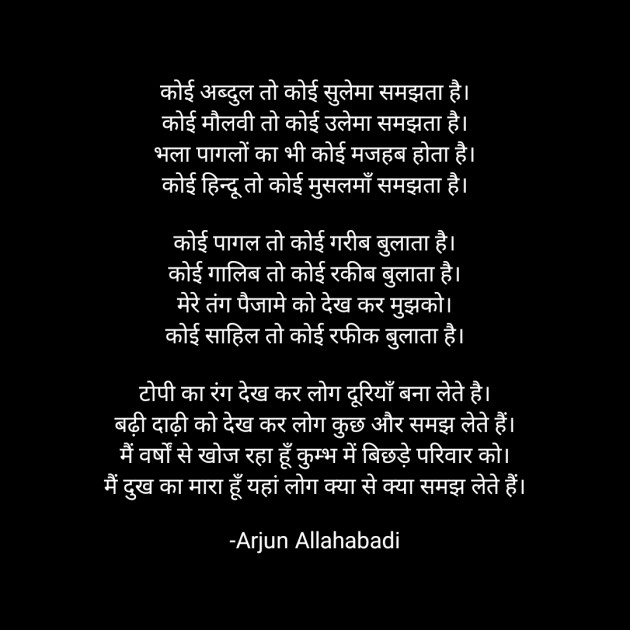 कोई अब्दुल तो कोई सुलेमा समझता है।
कोई मौलवी तो कोई उलेमा समझता है।
भला पागलों का भी कोई मजहब होता है।
कोई हिन्दू तो कोई मुसलमाँ समझता है।
कोई पागल तो कोई गरीब बुलाता है।
कोई गालिब तो कोई रकीब बुलाता है।
मेरे तंग पैजामे को देख कर मुझको।
कोई साहिल तो कोई रफीक बुलाता है।
टोपी का रंग देख कर लोग दूरियाँ बना लेते है।
बढ़ी दाढ़ी को देख कर लोग कुछ और समझ लेते हैं।
मैं वर्षों से खोज रहा हूँ कुम्भ में बिछड़े परिवार को।
मैं दुख का मारा हूँ यहां लोग क्या से क्या समझ लेते हैं।
-Arjun Allahabadi